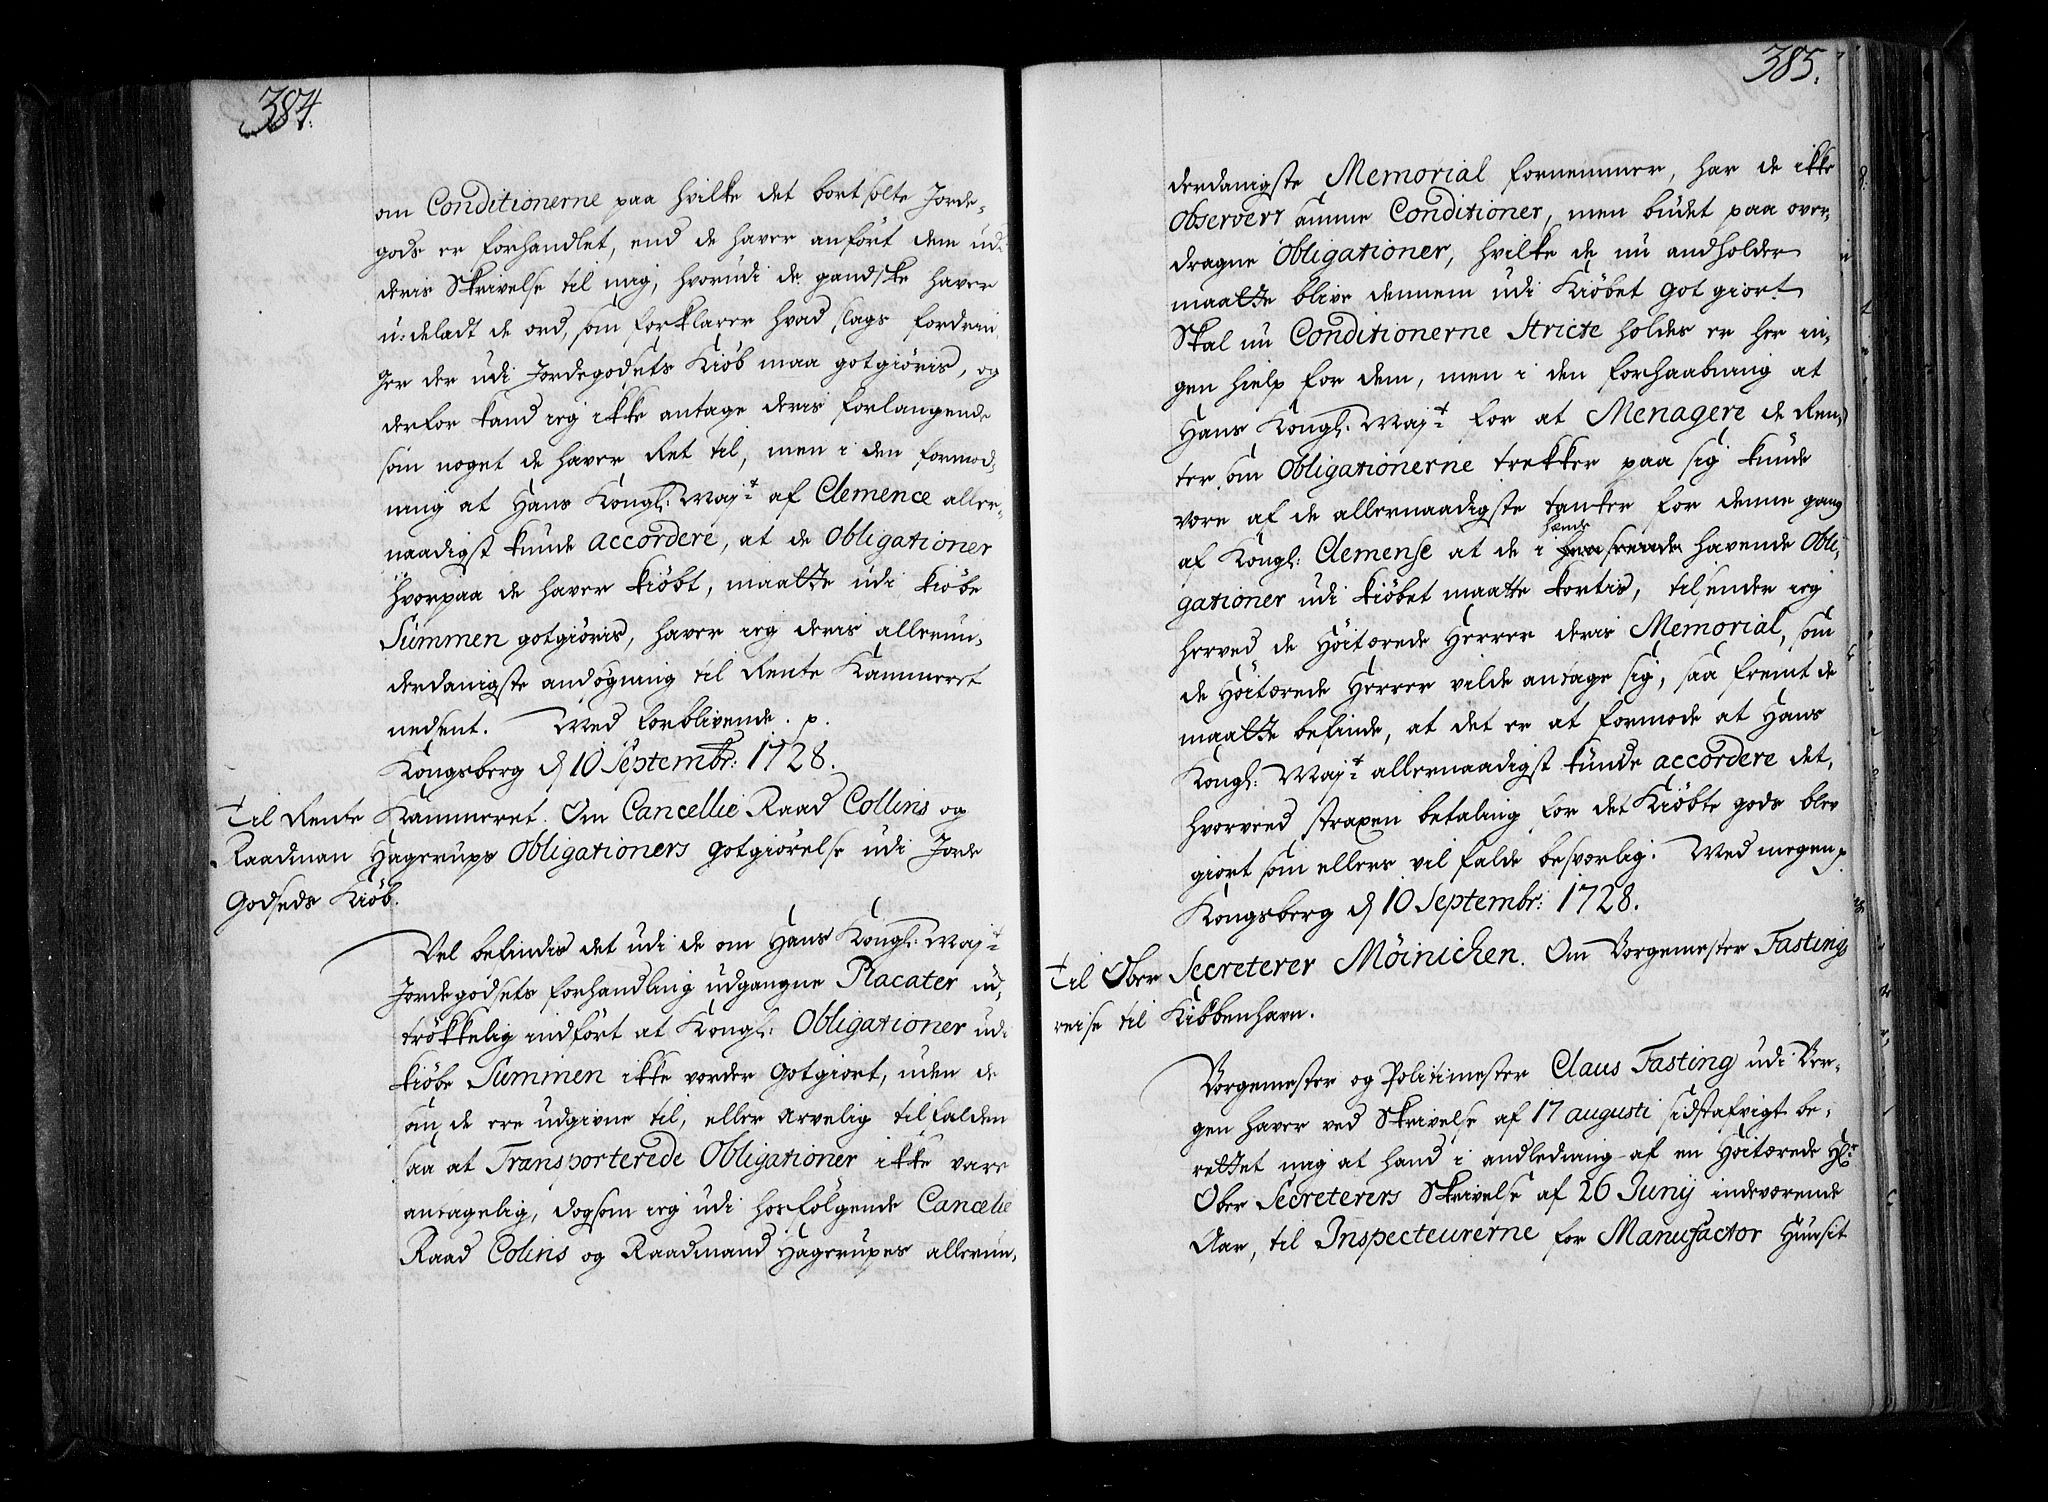 384.
om Conditionerne paa hvilke det bortsolte Jorde-
gods er forhandlet, end de haver anført dem ud-
deris Skrivelse til mig, hvorudi de gandske haver
udeladt de ord, som forklarer hvad slags fordrin
ger der udi Jordegodsets Kiøb maa gotgiøris, og
derfor kand ieg ikke antage deris forlangende
som noget de haver Ret til, men i den formod-
ning at Hans Kongl: Maj:t af Clemence aller-
naadigst kunde accordere, at de Obligationer
hvorpaa de haver kiøbt, maatte udi kiøbe
Summen gotgiøris, haver ieg deris allerun-
derdanigste andsøgning til Rente Kammeret
nedsent. Med forblivende. p.
Kongsberg d 10 Septembr: 1728.
Til Rente Kammeret. Om Cancellie Raad Collins og
Raadman Hagerups Obligationers gotgiørelse udi Jorde
Godseds Kiøb.
Vel befindis det udi de om Hans Kongl: Maj:t
Jordegodsets forhandling udgangne Placater ud-
trøkkelig indført at Kongl: Obligationer udi
kiøbe Summen ikke vorder gotgiort, uden de
som de ere udgivne til, eller arvelig tilfalden
saa at Transporterede Obligationer ikke vare
antagelig, dog som ieg udi hosfølgende Cancelie
Raad Colins og Raadmand Hagerupes allerun-
385.
derdanigste Memorial fornemmer, har de ikke
Observert samme Conditioner, men budet paa over-
dragne Obligationer, hvilke de nu andholder
maatte blive dennem udi Kiøbet got giort
Skal nu Conditionerne Stricte holdes er her in-
gen hielp for dem, men i den forhaabning at
Hans Kongl: Maj:t for at Menagere de Ren-
ter som Obligationerne trekker paa sig kunde
vore af de allernaadigste tanker for denne gang
af Kongl: Clemense at de i hænde havende Obli-
gationer udi kiøbet maatte kortis, tilsender ieg
herved de Høitærede Herrer deris Memorial, som
de Høitærede Herrer vilde antage sig, saa fremt de
maatte befinde, at det er at formode at Hans
Kongl: Maj:t allernaadigst kunde accordere det,
hvorved straxen betaling for det Kiøbte gods blev
giort som ellers vil falde besværlig. Med megen p.
Kongsberg d 10 Septembr: 1728.
Til Ober Secreterer Möinichen. Om Borgemester Fastings
reise til Kiöbenhavn.
Borgemester og Politimester Claus Fasting udi Ber-
gen haver ved Skrivelse af 17 augusti sidstafvigt be-
rettet mig at hand i andledning af en Høitærede Hr:
Ober Secreterers Skrivelse af 26 Junij indeværende
Aar, til Inspecteurerne for Manufactor Huusit